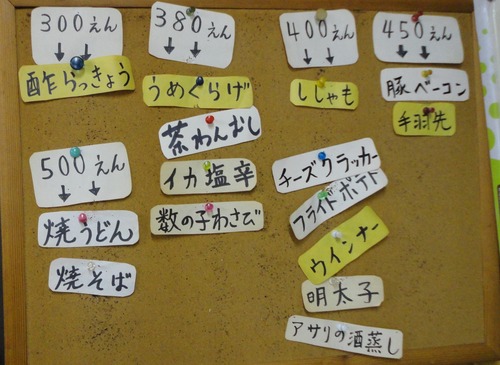 300えん
酢らっきょう
380えん
うめくらげ
茶わんむし
イカ塩辛
数の子わさび
400えん
ししゃも
チーズクラッカー
フライドポテト
ウインナー
明太子
アサリの酒蒸し
450えん
豚ベーコン
手羽先
500えん
焼うどん
焼そば